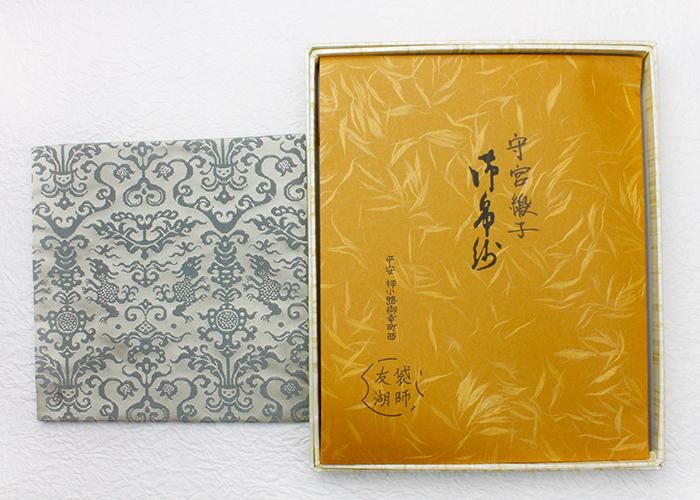 守宮緞子
御帛紗
平安 押小路御幸町西
袋師
友湖